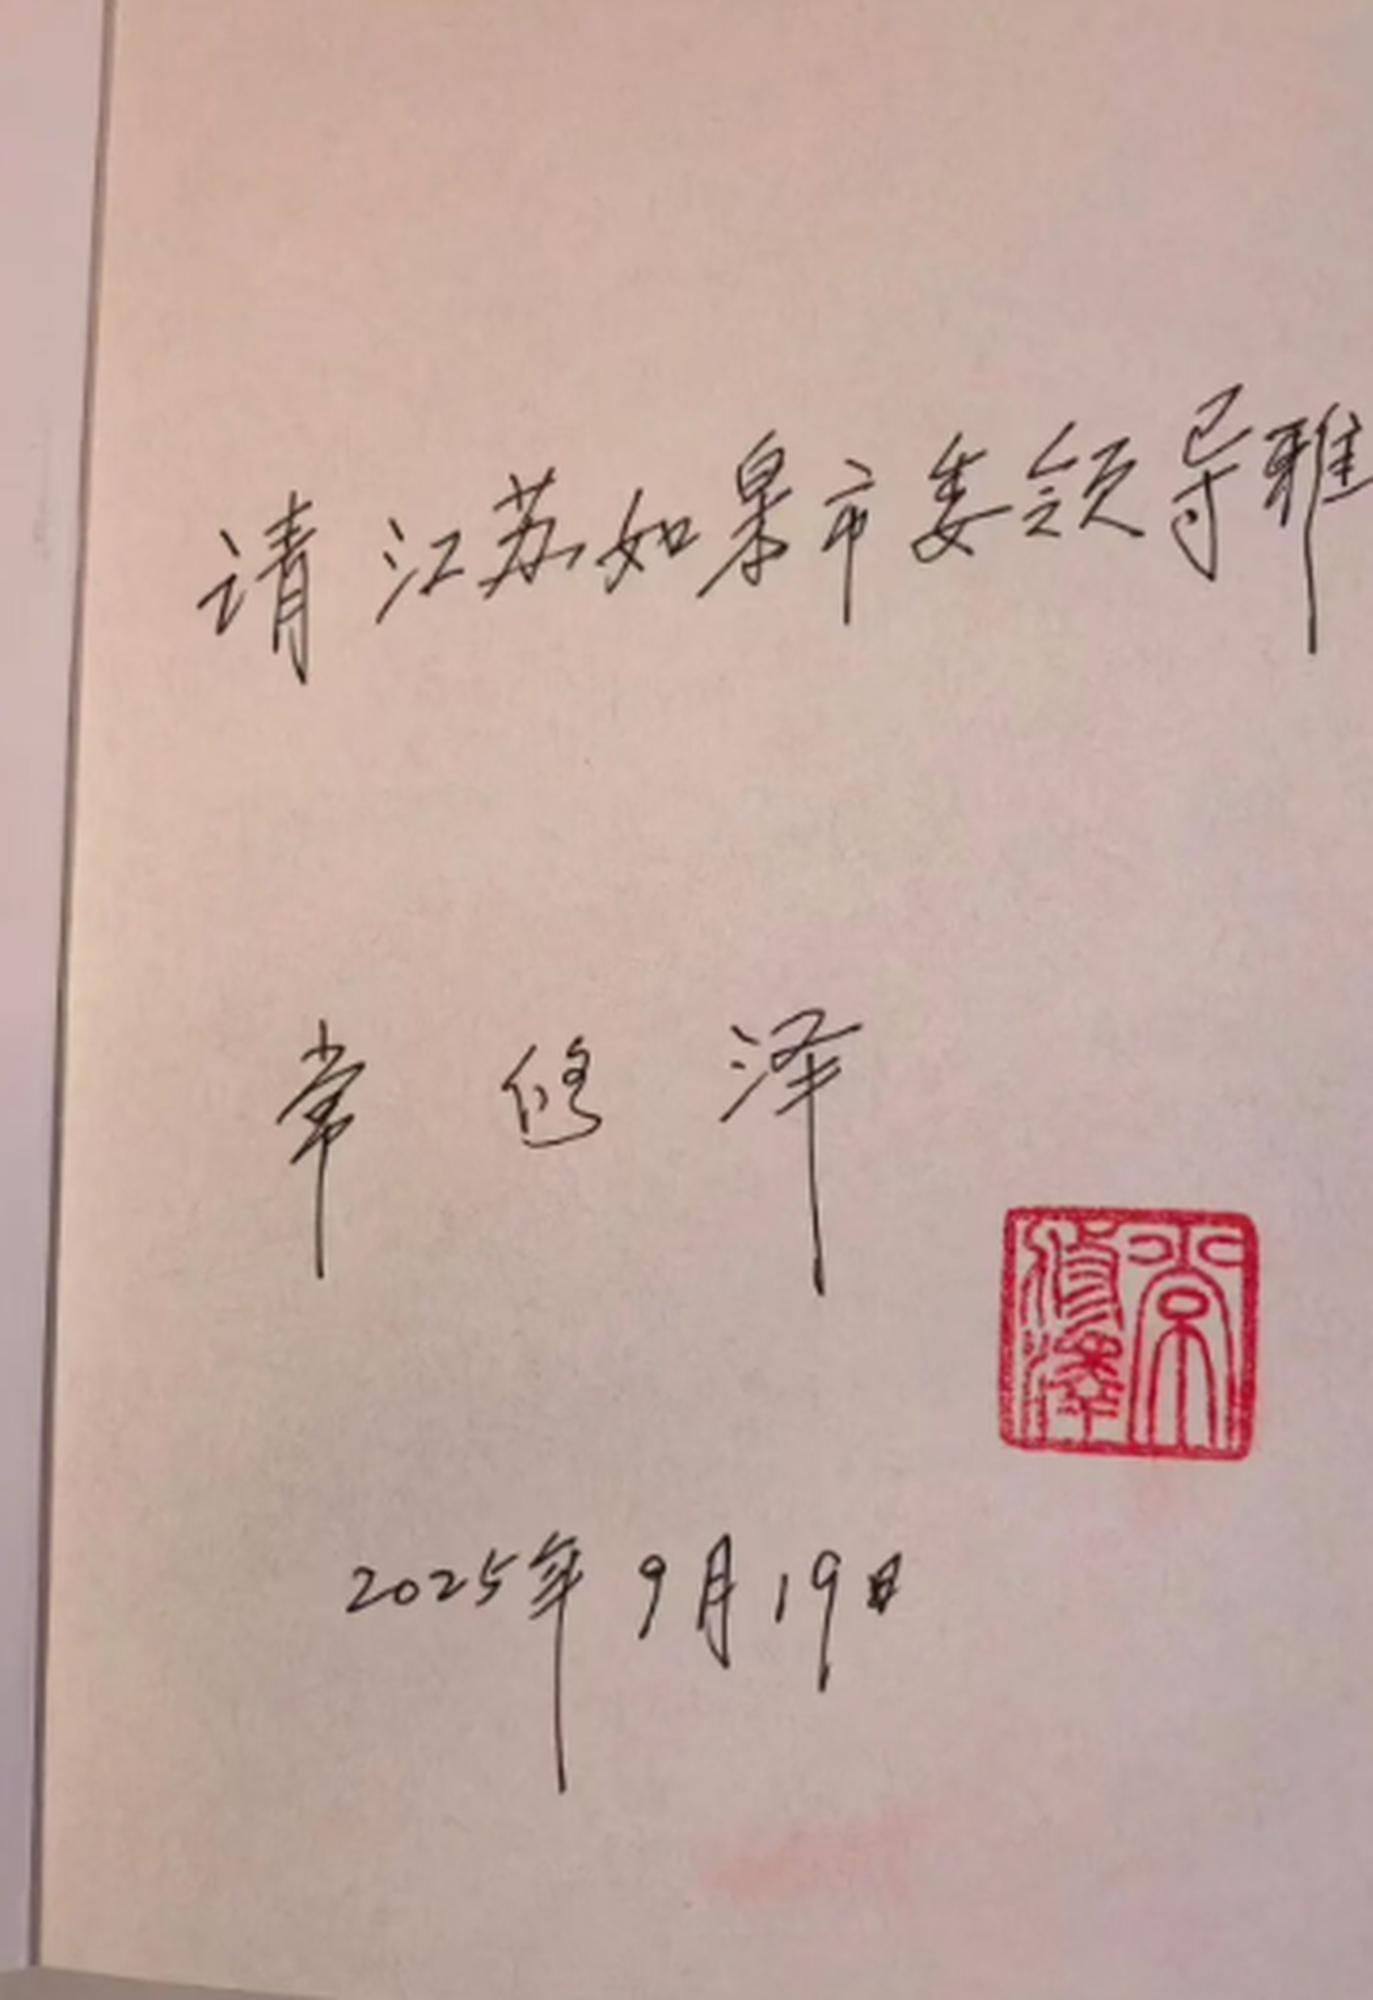 请江苏如皋市委领导雅
常修泽
常修澤
2025年9月19日